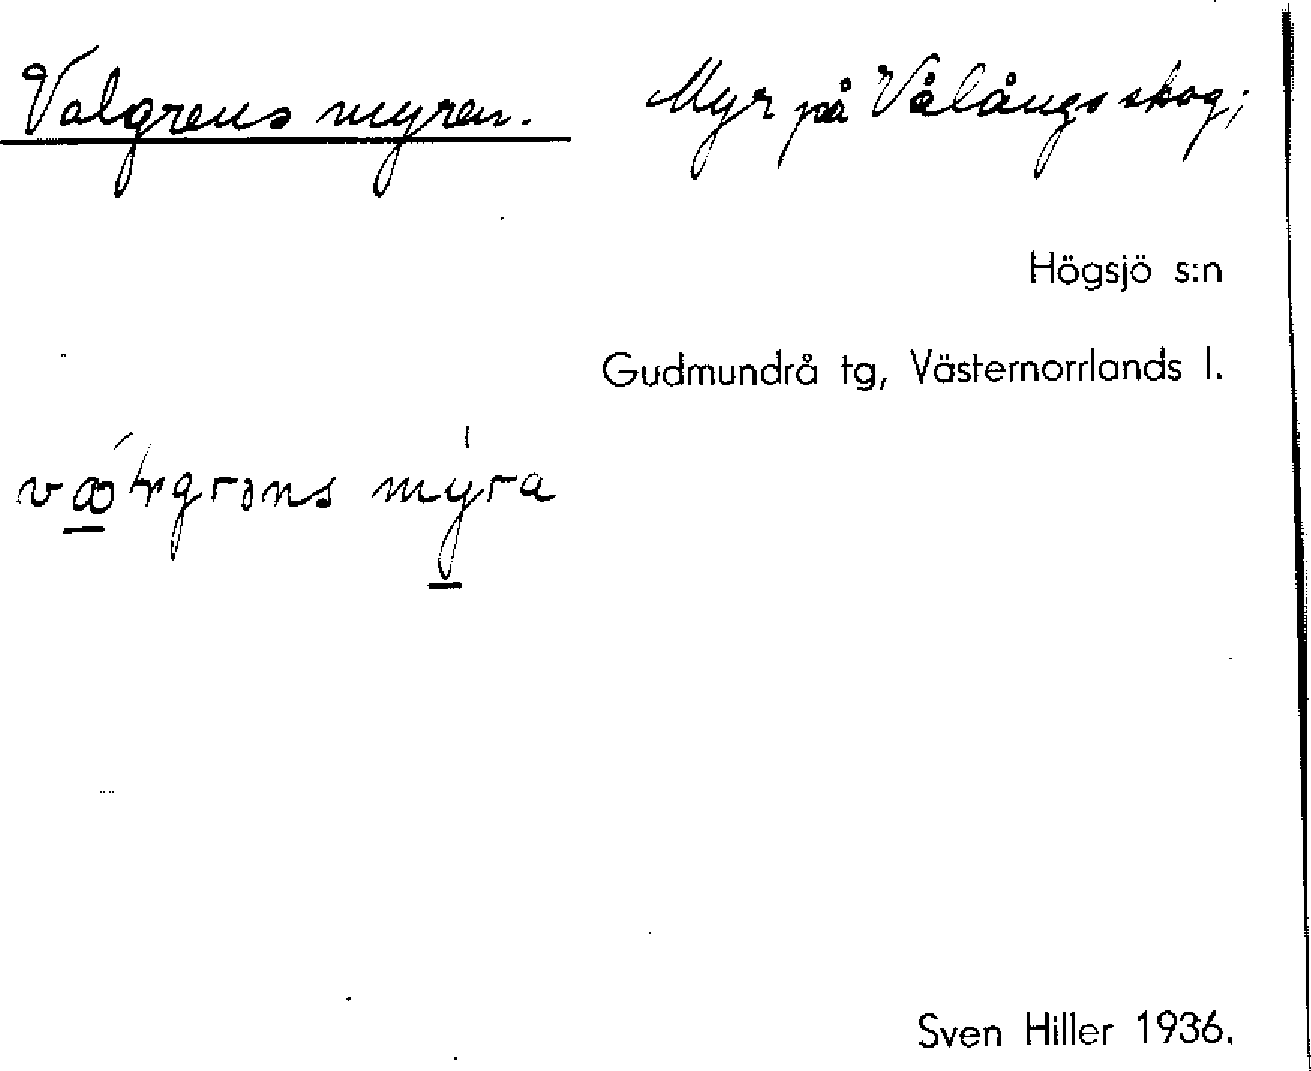 Valgrens myren. Myr på Vålångs skog;
Högsjö s:n
Gudmundrå tg, Västernorrlands l.
myra
Sven Hiller 1936.